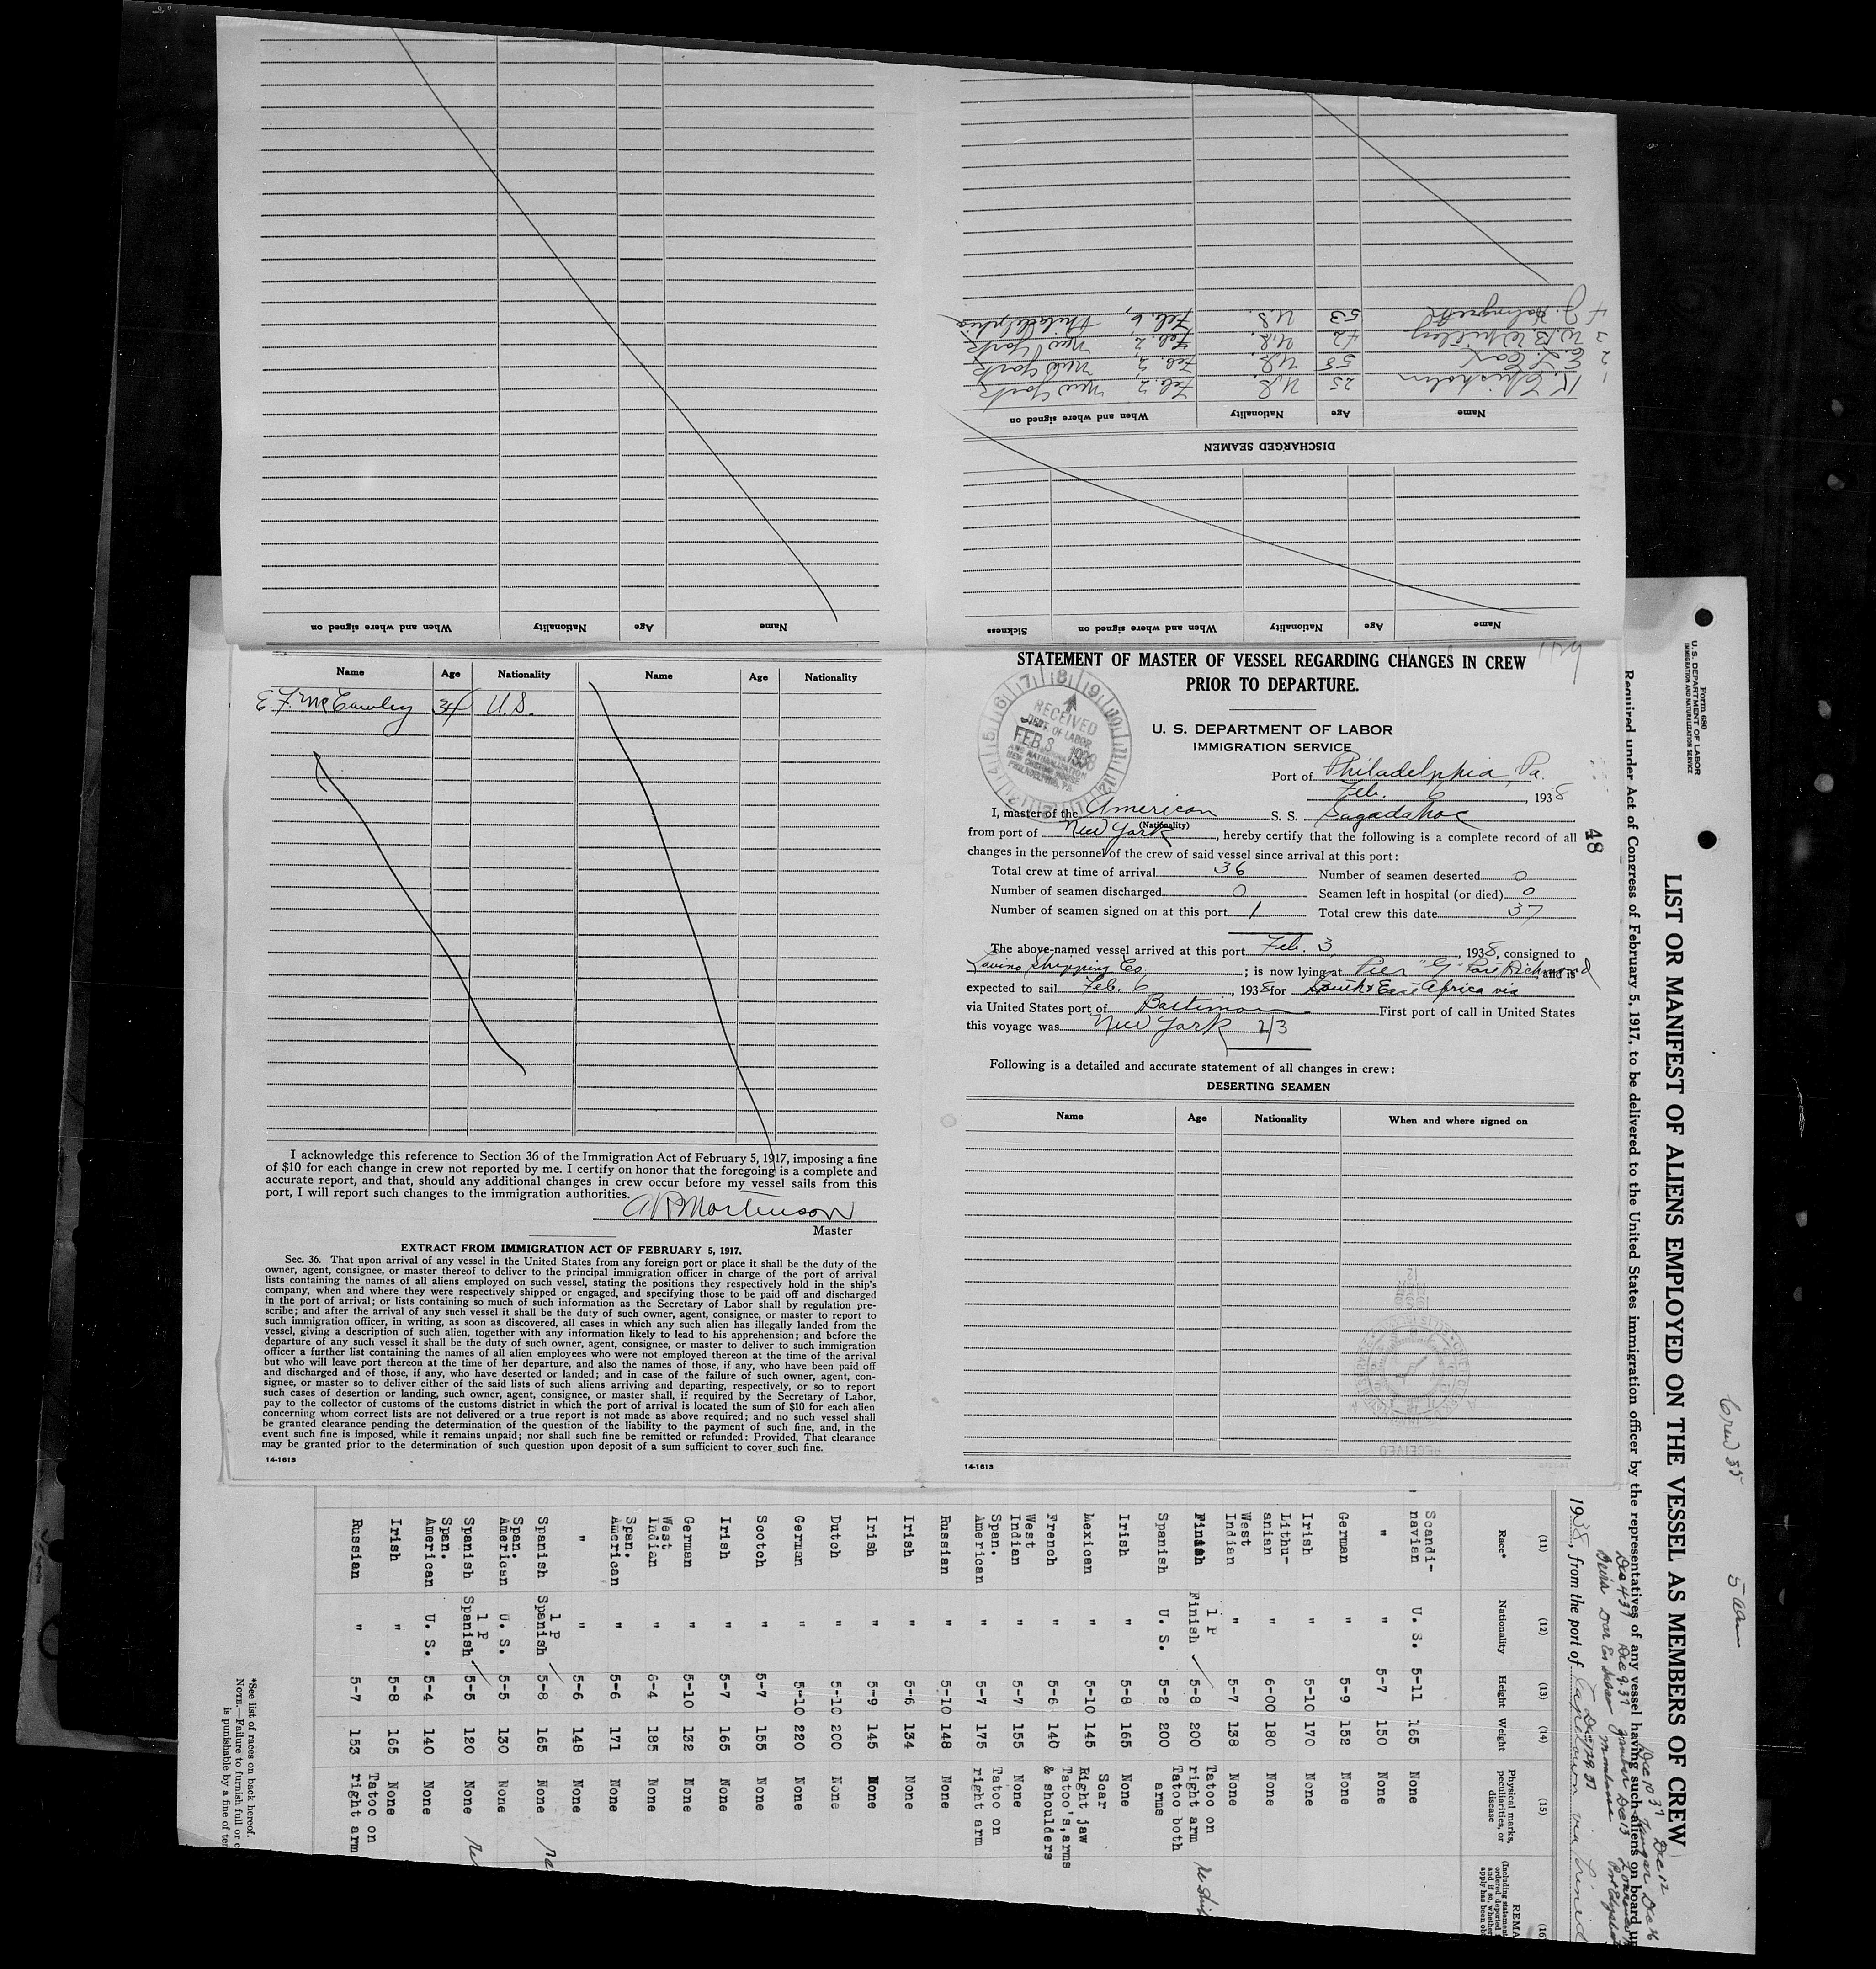 When and where signed on Nationality Age Name
DISCHARGED SEAMEN
Name Age Nationality When and where signed on
1 K. Chisholm 25 U.S. Feb. 2, New York
2 E. L. Cox 58 U.S. Feb. 2, New York
3 W. B. Whitley 42 U.S. Feb. 2, New York
4 J. 53 U.S. Feb. 6, Philadelphia
Name Age Nationality When and where signed on Sickness
Name Age Nationality Name Age Nationality
E. F. McCawley 34 U.S.
I acknowledge this reference to Section 36 of the Immigration Act of February 5, 1917, imposing a fine
of $10 for each change in crew not reported by me. I certify on honor that the foregoing is a complete and
accurate report, and that, should any additional changes in crew occur before my vessel sails from this
port, I will report such changes to the immigration authorities.
Mortenson
Master
EXTRACT FROM IMMIGRATION ACT OF FEBRUARY 5, 1917.
Sec. 36. That upon arrival of any vessel in the United States from any foreign port or place it shall be the duty of the
owner, agent, consignee, or master thereof to deliver to the principal immigration officer in charge of the port of arrival
lists containing the names of all aliens employed on such vessel, stating the positions they respectively hold in the ship's
company, when and where they were respectively shipped or engaged, and specifying those to be paid off and discharged
in the port of arrival; or lists containing so much of such information as the Secretary of Labor shall by regulation pre-
scribe; and after the arrival of any such vessel it shall be the duty of such owner, agent, consignee, or master to report to
such immigration officer, in writing, as soon as discovered, all cases in which any such alien has illegally landed from the
vessel, giving a description of such alien, together with any information likely to lead to his apprehension; and before the
departure of any such vessel it shall be the duty of such owner, agent, consignee, or master to deliver to such immigration
officer a further list containing the names of all alien employees who were not employed thereon at the time of the arrival
but who will leave port thereon at the time of her departure, and also the names of those, if any, who have been paid off
and discharged and of those, if any, who have deserted or landed; and in case of the failure of such owner, agent, con-
signee, or master so to deliver either of the said lists of such aliens arriving and departing, respectively, or so to report
such cases of desertion or landing, such owner, agent, consignee, or master shall, if required by the Secretary of Labor,
pay to the collector of customs of the customs district in which the port of arrival is located the sum of $10 for each alien
concerning whom correct lists are not delivered or a true report is not made as above required; and no such vessel shall
be granted clearance pending the determination of the question of the liability to the payment of such fine, and, in the
event such fine is imposed, while it remains unpaid; nor shall such fine be remitted or refunded: Provided, That clearance
may be granted prior to the determination of such question upon deposit of a sum sufficient to cover such fine.
14-1613
STATEMENT OF MASTER OF VESSEL REGARDING CHANGES IN CREW
PRIOR TO DEPARTURE.
U. S. DEPARTMENT OF LABOR
IMMIGRATION SERVICE
RECEIVED
DEPT OF LABOR
FEB 8 1938
PHILADELPHIA, PA.
Port of Philadelphia, Pa.
Feb. 6, 1938
I, master of the American S. S. Sagadahoc
(Nationality)
from port of New York, hereby certify that the following is a complete record of all
changes in the personnel of the crew of said vessel since arrival at this port:
Total crew at time of arrival 36 Number of seamen deserted 0
Number of seamen discharged 0 Seamen left in hospital (or died) 0
Number of seamen signed on at this port 1 Total crew this date 37
The above-named vessel arrived at this port Feb. 3, 1938, consigned to
Lavino Shipping Co. ; is now lying at Pier "G" Port Richmond, and is
expected to sail Feb. 6, 1938 for South & East Africa via
via United States port of Baltimore First port of call in United States
this voyage was New York 2/3
Following is a detailed and accurate statement of all changes in crew:
DESERTING SEAMEN
Name Age Nationality When and where signed on
14-1613
48
Form 680
U. S. DEPARTMENT OF LABOR
IMMIGRATION AND NATURALIZATION SERVICE
LIST OR MANIFEST OF ALIENS EMPLOYED ON THE VESSEL AS MEMBERS OF CREW
Required under Act of Congress of February 5, 1917, to be delivered to the United States immigration officer by the representatives of any vessel having such aliens on board
1938, from the port of Capetown via
Crew 35
(11) (12) (13) (14) (15) (16)
Race* Nationality Height Weight Physical marks, peculiarities, or disease
Scandi-navian U. S. 5-11 165 None
" " 5-7 150 None
German " 5-9 152 None
Irish " 5-10 170 None
Lithu-anian " 6-00 180 None
West Indian " 5-7 138 None
Finish 1 P Finish 5-8 200 Tatoo on right arm
Spanish U. S. 5-2 200 Tatoo both arms
Irish " 5-8 165 None
Mexican " 5-10 145 Scar Right jaw
French " 5-6 140 Tatoo's, arms & shoulders
West Indian " 5-7 155 None
Span. American " 5-7 175 Tatoo on right arm
Russian " 5-10 148 None
Irish " 5-6 134 None
Irish " 5-9 145 None
Dutch " 5-10 200 None
German " 5-10 220 None
Scotch " 5-7 155 None
Irish " 5-7 165 None
German " 5-10 132 None
West Indian " 6-4 185 None
Span. American " 5-6 171 None
" " 5-6 148 None
Spanish 1 P Spanish 5-8 165 None
Span. American U. S. 5-5 130 None
Spanish 1 P Spanish 5-5 120 None
Span. American U. S. 5-4 140 None
Irish " 5-8 165 None
Russian " 5-7 153 Tatoo on right arm
*See list of races on back hereof.
NOTE.—Failure to furnish full or
is punishable by a fine of